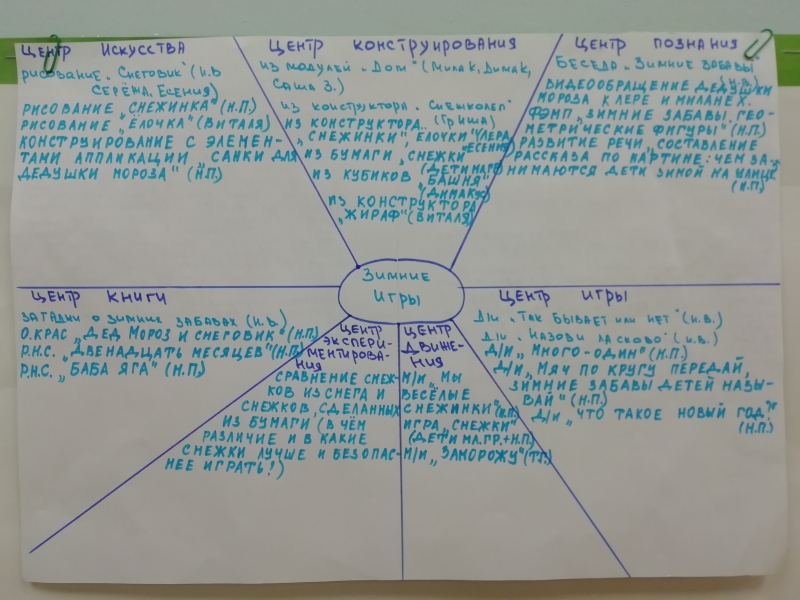 Центр Искусства
рисование „Снеговик" (И.В.
Серёжа, Есения)
Рисование „Снежинка" (Н.П.)
Рисование „Ёлочка" (Виталя)
Конструирование с элемен-
тами аппликации „Санки для
Дедушки Мороза" (Н.П.)
Центр конструирования
из модулей „Дом" (Милак, Димак,
Саша З.)
из конструктора „Снежколеп"
(Гриша)
из конструктора
„Снежинки", ёлочки" (Лера,
Есения)
из бумаги „Снежки"
(дети мл.гр.)
из кубиков „Башня"
(Димакус)
из конструктора
„Жираф" (Виталя)
Центр познания
Беседа „Зимние забавы"
(И.В.)
Видеообращение Дедушки
Мороза к Лере и Милане Х.
ФЭМП „Зимние забавы. Гео-
метрические фигуры" (Н.П.)
Развитие речи „Составление
рассказа по картине: чем за-
нимаются дети зимой на улице
(Н.П.)
Зимние
игры
Центр книги
Загадки о зимних забавах (И.В.)
О.Крас „Дед Мороз и снеговик" (Н.П.)
Р.Н.С. „Двенадцать месяцев" (Н.П.)
Р.Н.С. „Баба Яга" (Н.П.)
Центр
экспери-
ментирова-
ния
Сравнение снеж-
ков из снега и
снежков, сделанных
из бумаги (в чём
различие и в какие
снежки лучше и безопас-
нее играть!)
Центр
движе-
ния
М/и „Мы
весёлые
снежинки" (Н.П.)
Игра „Снежки"
(дети мл.гр.+Н.П.)
М/и „Заморожу" (Т.Г.)
Центр игры
Д/и „Так бывает или нет" (И.В.)
Д/и „Назови ласково" (И.В.)
Д/и „Много-один" (Н.П.)
Д/и „Мяч по кругу передай,
зимние забавы детей назы-
вай" (Н.П.)
Д/и „Что такое Новый год?"
(Н.П.)